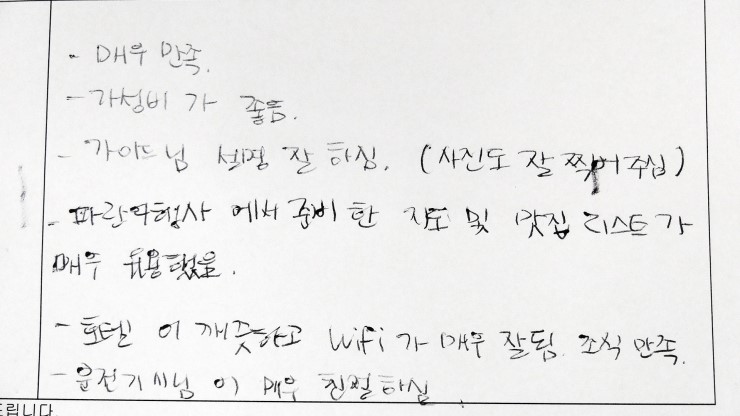 - 매우 만족.
- 가성비 가 좋음.
- 가이드님 설명 잘 하심. (사진도 잘 찍어주심)
- 파란여행사 에서 준비한 지도 및 맛집 리스트가
매우 유용했음.
- 호텔 이 깨끗하고 wifi가 매우 잘됨. 조식 만족.
- 운전기사님 이 매우 친절하심
드립니다.